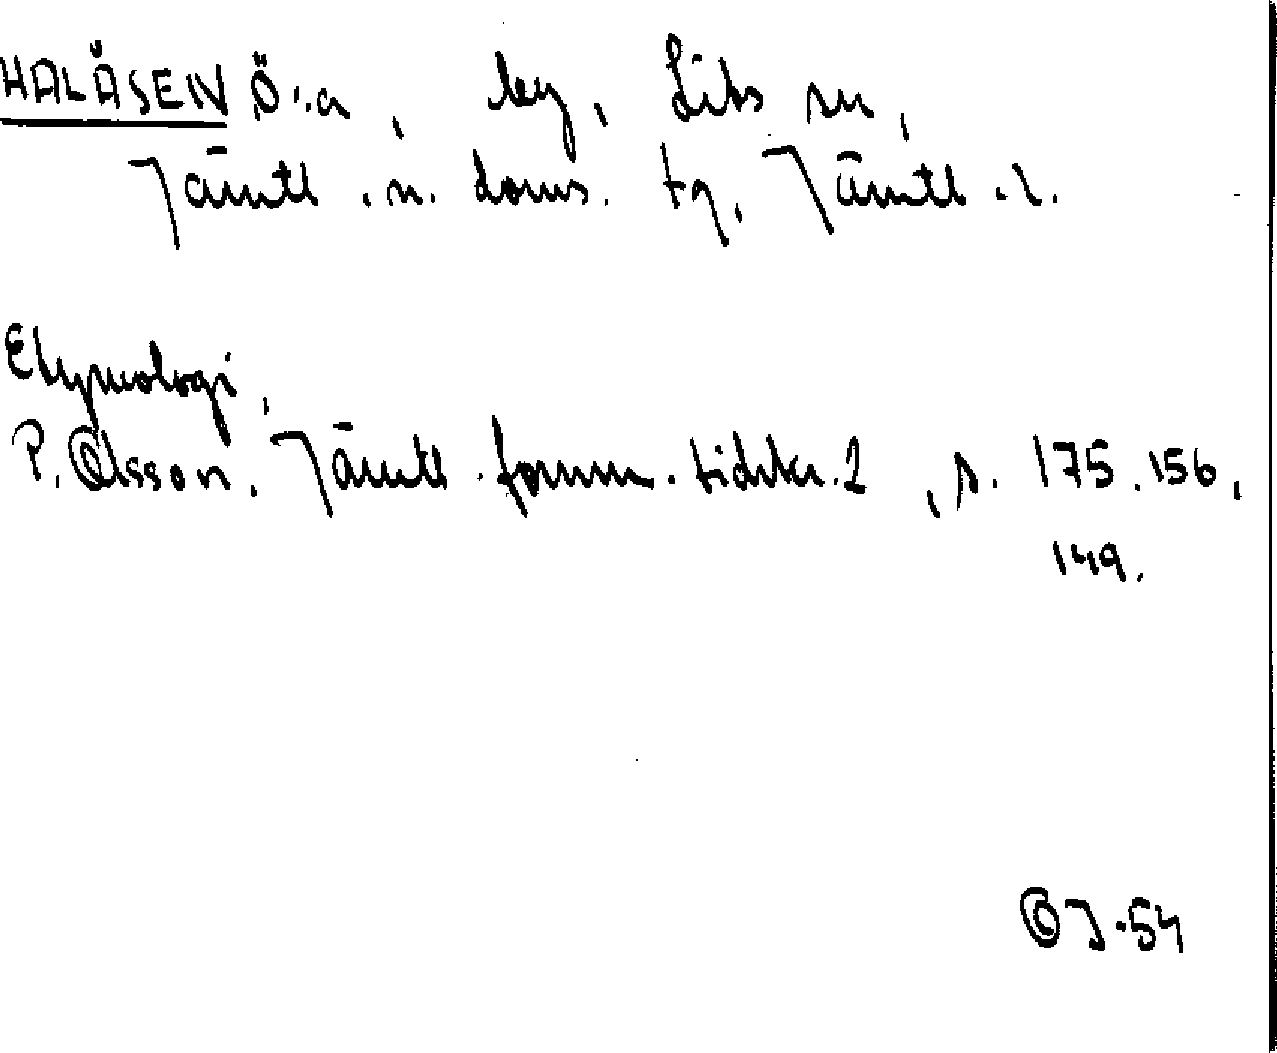 HALÅSEN Ö:a, by, Lits sn,
Jämtl. n. doms. tg, Jämtl. l.
Etymologi,
P. Olsson. Jämtl. fornm. tidskr. 2, s. 175. 156,
149.
OJ-54